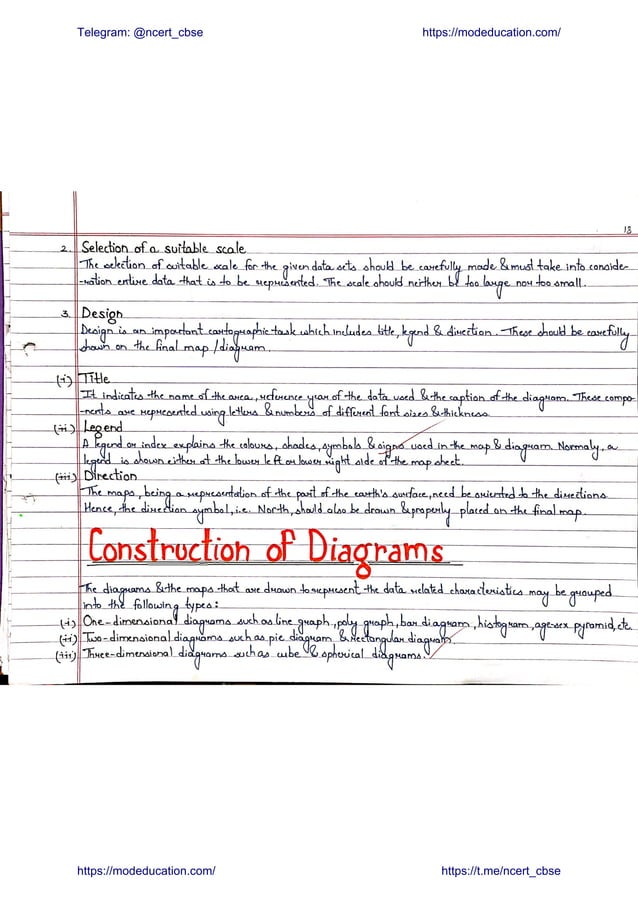 Telegram: @ncert_cbse https://modeducation.com/
13
2. Selection of a suitable scale
The selection of suitable scale for the given data sets should be carefully made & must take into conside-
-ration entire data that is to be represented. The scale should neither be too large nor too small.
3. Design
Design is an important cartographic task which includes title, legend & direction. These should be carefully
shown on the final map / diagram.
(i) Title
It indicates the name of the area, reference year of the data used & the caption of the diagram. These compo-
-nents are represented using letters & numbers of different font sizes & thickness
(ii) Legend
A legend or index explains the colours, shades, symbols & signs used in the map & diagram. Normaly, a
legend is shown either at the lower left or lower right side of the map sheet.
(iii) Direction
The maps, being a representation of the part of the earth's surface, need be oriented to the directions
Hence, the direction symbol, i.e. North, should also be drawn & properly placed on the final map.
Construction of Diagrams
The diagrams & the maps that are drawn to represent the data related characteristics may be grouped
into the following types:
(i) One-dimensional diagrams such as line graph, poly graph, bar diagram, histogram, age-sex pyramid, etc.
(ii) Two-dimensional diagrams such as pie diagram & Rectangular diagram.
(iii) Three-dimensional diagrams such as cube & spherical diagrams.
https://modeducation.com/ https://t.me/ncert_cbse